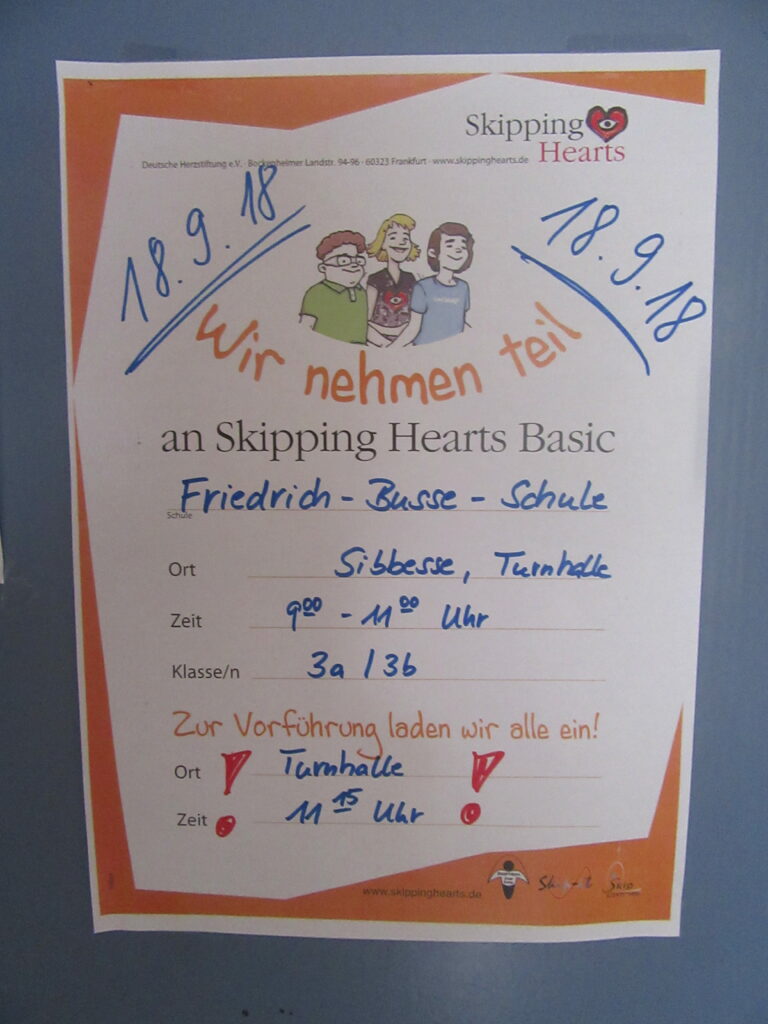 Skipping
Hearts
Deutsche Herzstiftung e.V. · Bockenheimer Landstr. 94-96 · 60323 Frankfurt · www.skippinghearts.de
18.9.18
18.9.18
Wir nehmen teil
an Skipping Hearts Basic
Friedrich-Busse-Schule
Schule
Ort Sibbesse, Turnhalle
Zeit 9⁰⁰ - 11⁰⁰ Uhr
Klasse/n 3a / 3b
Zur Vorführung laden wir alle ein!
Ort ! Turnhalle !
Zeit 11¹⁵ Uhr
www.skippinghearts.de